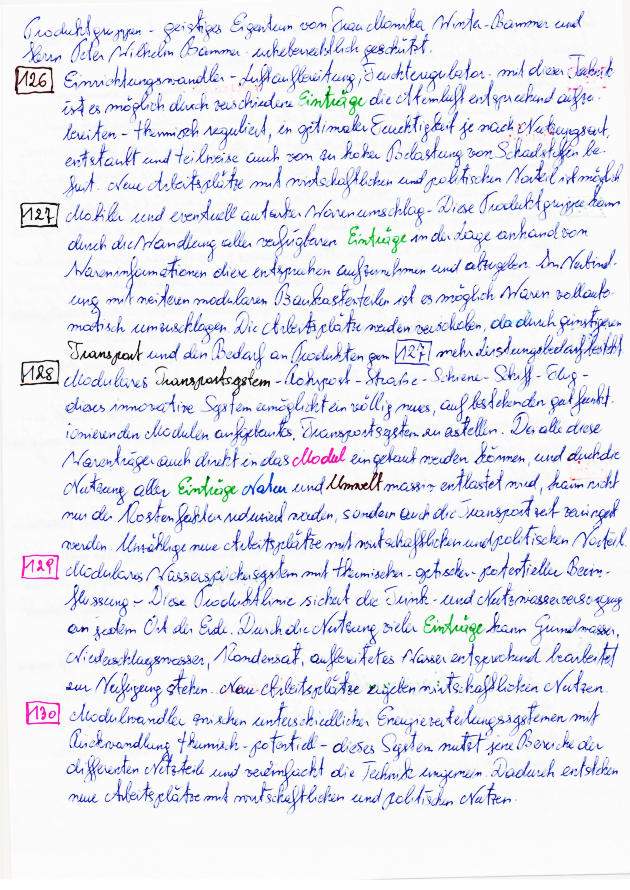 Produktgruppen - geistiges Eigentum von Frau Monika Winter-Bammer und
Herrn Peter Wilhelm Bammer. urheberrechtlich geschützt.
126 Einrichtungswandler - Luftaufbereitung, Feuchteregulator - mit dieser Technik
ist es möglich durch verschiedene Einträge die Atemluft entsprechend aufzu-
bereiten - thermisch reguliert, in optimaler Feuchtigkeit je nach Nutzungsart,
entstaubt und teilweise auch von zu hoher Belastung von Schadstoffen be-
freit. Neue Arbeitsplätze mit wirtschaftlichen und politischen Vorteil ist möglich
127 Mobiler und eventuell autarker Warenumschlag - Diese Produktgruppe kann
durch die Wandlung aller verfügbaren Einträge in der Lage anhand von
Wareninformationen diese entsprechen aufzunehmen und abzugeben. In Verbind-
ung mit weiteren modularen Baukastenteilen ist es möglich Waren vollauto-
matisch umzuschlagen. Die Arbeitsplätze werden verschoben, da durch günstigeren
Transport und den Bedarf an Produkten gem 127 mehr Leistungsbedarf besteht
128 Modulares Transportsystem - Rohrpost - Strasse - Schiene - Schiff - Flug -
dieses innovative System ermöglicht ein völlig neues, auf bestehenden gut funkt-
ionierenden Modulen aufgebautes, Transportsystem zu erstellen. Da alle diese
Warenträger auch direkt in das Modul eingebaut werden können, und durch die
Nutzung aller Einträge Natur und Umwelt massiv entlastet wird, kann nicht
nur der Kostenfaktor reduziert werden, sondern auch die Transportzeit verringert
werden. Unzählige neue Arbeitsplätze mit wirtschaftlichen und politischen Vorteil.
129 Modulares Wasserspeichersystem mit thermischer - optischer - potentieller Beein-
flussung - Diese Produktlinie sichert die Trink- und Nutzwasserversorgung
an jedem Ort der Erde. Durch die Nutzung vieler Einträge kann Grundwasser,
Niederschlagswasser, Kondensat, aufbereitetes Wasser entsprechend bearbeitet
zur Verfügung stehen. Neue Arbeitsplätze ergeben wirtschaftlichen Nutzen.
130 Modulwandler zwischen unterschiedlicher Energieverteilungssystemen mit
Rückwandlung thermisch - potentiell - dieses System nutzt jene Bereiche der
differenten Netzteile und vereinfacht die Technik ungemein. Dadurch entstehen
neue Arbeitsplätze mit wirtschaftlichen und politischen Nutzen.